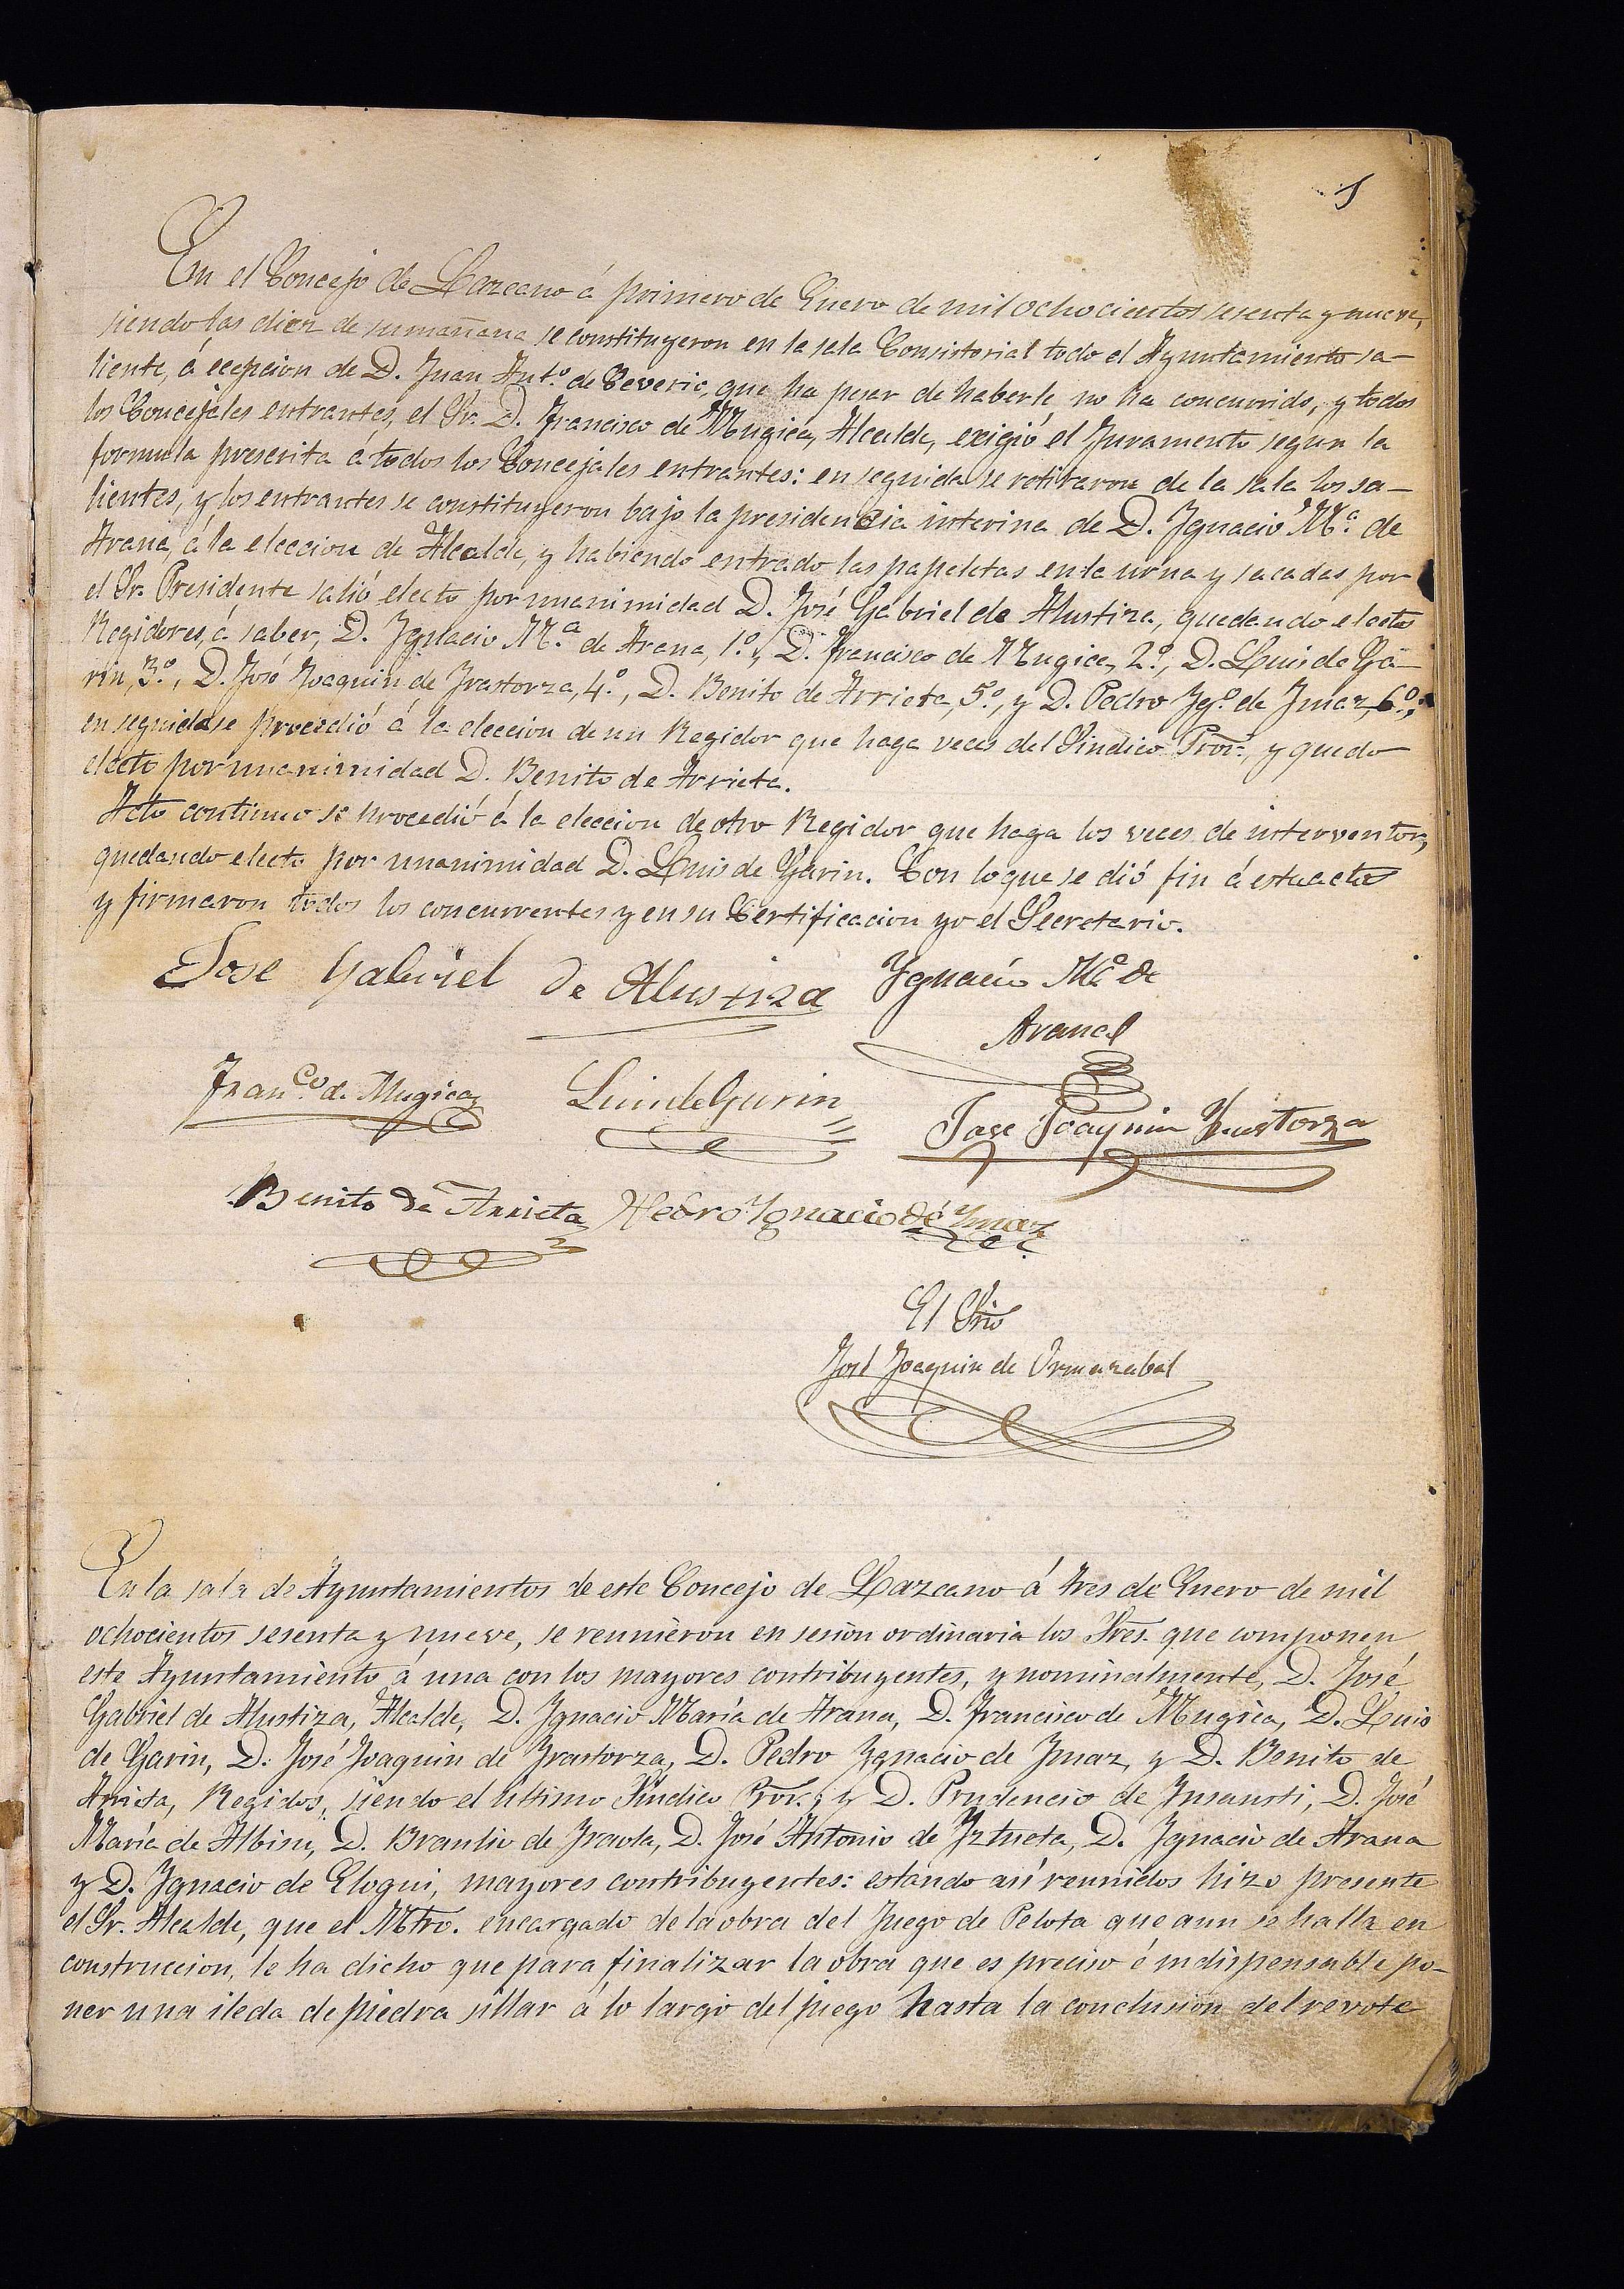 1
En el Concejo de Lazcano á primero de Enero de mil ochocientos sesenta y nueve,
siendo las diez de su mañana se constituyeron en la sala Consistorial todo el Ayuntamiento sa-
liente, á ecepcion de D. Juan Ant.º de que ha pesar de haberle no ha concurrido, y todos
los Concejales entrantes, el Sr. D. Francisco de Mugica, Alcalde, exigió el Juramento segun la
formula prescrita á todos los Concejales entrantes: en seguida se retiraron de la sala los sa-
lientes, y los entrantes se constituyeron bajo la presidencia interina de D. Ygnacio M.ª de
Arana, á la eleccion de Alcalde, y habiendo entrado las papeletas en la urna y sacadas por
el Sr. Presidente salió electo por unanimidad D. José Gabriel de Alustiza, quedando electos
Regidores, á saber, D. Ygnacio M.ª de Arana, 1.º, D. Francisco de Mugica, 2.º, D. Luis de Ga-
rin, 3.º, D. José Joaquin de Yrastorza, 4.º, D. Benito de Arrieta, 5.º, y D. Pedro Yg.º de Ymaz, 6.º,
en seguida se procedió á la eleccion de un Regidor que haga veces del Sindico Pror., y quedo
electo por unanimidad D. Benito de Arrieta.
Acto continuo se procedió á la eleccion de otro Regidor que haga los veces de interventor,
quedando electo por unanimidad D. Luis de Garin. Con lo que se dió fin á este acto
y firmaron todos los concurrentes y en su Certificacion yo el Secretario.
Jose Gabriel de Alustiza Ygnacio M.ª de
Arana
Fran.co de Mugica Luis de Garin
Jose Joaquin Yrastorza
Benito de Arrieta Pedro Ygnacio de Ymaz
El Srio
José Joaquin de Ormazabal
En la sala de Ayuntamientos de este Concejo de Lazcano á tres de Enero de mil
ochocientos sesenta y nueve, se reunieron en sesion ordinaria los Sres. que componen
este Ayuntamiento á una con los mayores contribuyentes, y nominalmente, D. José
Gabriel de Alustiza, Alcalde, D. Ygnacio María de Arana, D. Francisco de Mugica, D. Luis
de Garin, D. José Joaquin de Yrastorza, D. Pedro Ygnacio de Ymaz, y D. Benito de
Arrieta, Regidos, siendo el ultimo Sindico Pror.; y D. Prudencio de Ynsausti, D. José
María de Albisu, D. Braulio de Yraola, D. José Antonio de Yztueta, D. Ygnacio de Arana
y D. Ygnacio de Elogui, mayores contribuyentes: estando asi reunidos hizo presente
el Sr. Alcalde, que el Mtro. encargado de la obra del Juego de Pelota que aun se halla en
construccion, le ha dicho que para finalizar la obra que es preciso é indispensable po-
ner una ileda de piedra sillar á lo largo del juego hasta la conclusion del revote